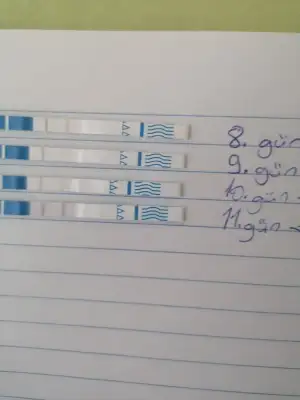 8. gün
9. gün
10. gün
11. gün →